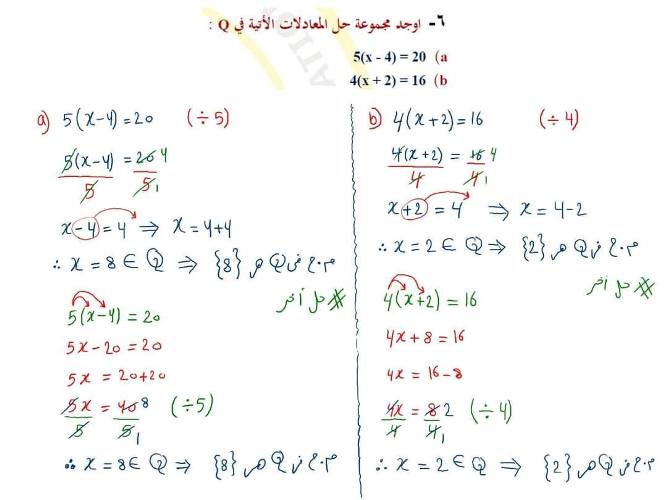 ٦- اوجد مجموعة حل المعادلات الأتية في Q :
5(x - 4) = 20 (a
4(x + 2) = 16 (b
a) 5(x-4)=20 (÷5)
5(x-4)/5 = 20 4/5 1
x-4=4 ⇒ x=4+4
∴ x=8∈Q ⇒ {8} م.ح في Q هي
※ حل أخر
5(x-4)=20
5x-20=20
5x=20+20
5x/5 = 40 8/5 1 (÷5)
∴ x=8∈Q ⇒ {8} م.ح في Q هي
b) 4(x+2)=16 (÷4)
4(x+2)/4 = 16 4/4 1
x+2=4 ⇒ x=4-2
∴ x=2∈Q ⇒ {2} م.ح في Q هي
※ حل أخر
4(x+2)=16
4x+8=16
4x=16-8
4x/4 = 8 2/4 1 (÷4)
∴ x=2∈Q ⇒ {2} م.ح في Q هي